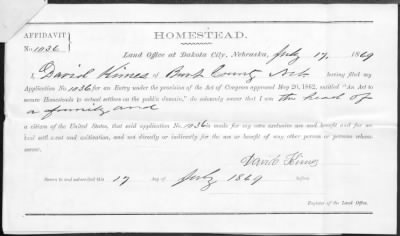 HOMESTEAD.
AFFIDAVIT
No. 1036
Land Office at Dakota City, Nebraska, July 17, 1869
I, David Hines of Burt County Neb having filed my
Application No. 1036 for an Entry under the provision of the Act of Congress approved May 20, 1862, entitled "An Act to
secure Homesteads to actual settlers on the public domain," do solemnly swear that I am the head of
a family and
a citizen of the United States, that said application No. 1036 is made for my own exclusive use and benefit and for
actual settlement and cultivation, and not directly or indirectly for the use or benefit of any other person or persons whom-
soever.
David Hines
Sworn to and subscribed this 17 day of July 1869 before
Register of the Land Office.